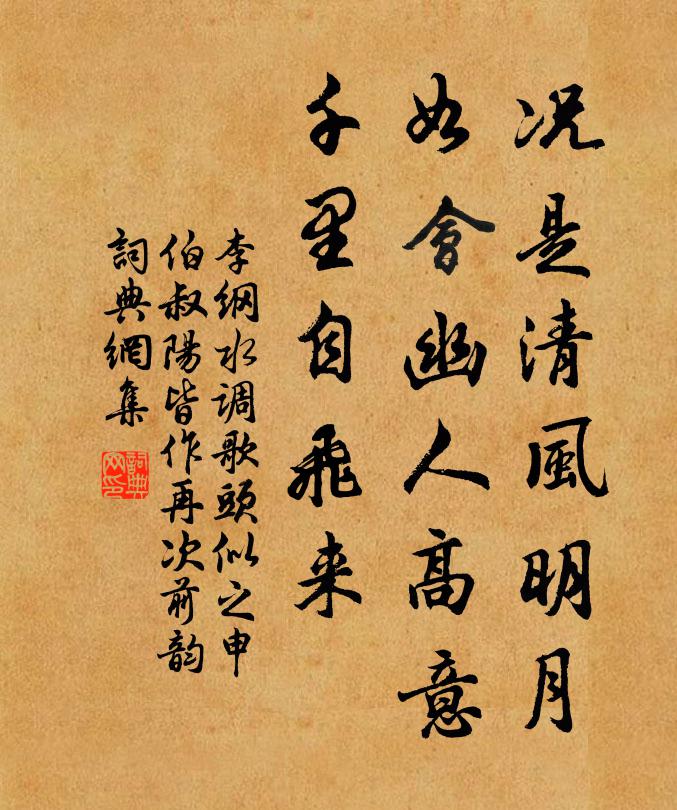 况是清風明月
如會幽人高意
千里自飛来
李纲水调歌頭似之申
伯叔陽皆作再次前韵
詞典網集
詞典
网印